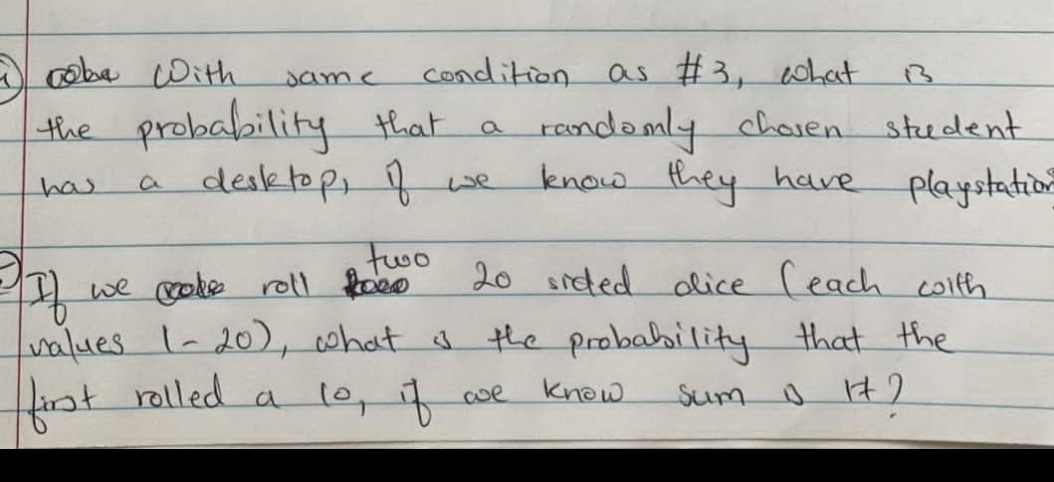 with same condition as #3, what is
the probability that a randomly chosen student
has a desktop, if we know they have playstation
two
If we roll 20 sided dice (each with
values 1-20), what is the probability that the
first rolled a 10, if we know sum is 17?